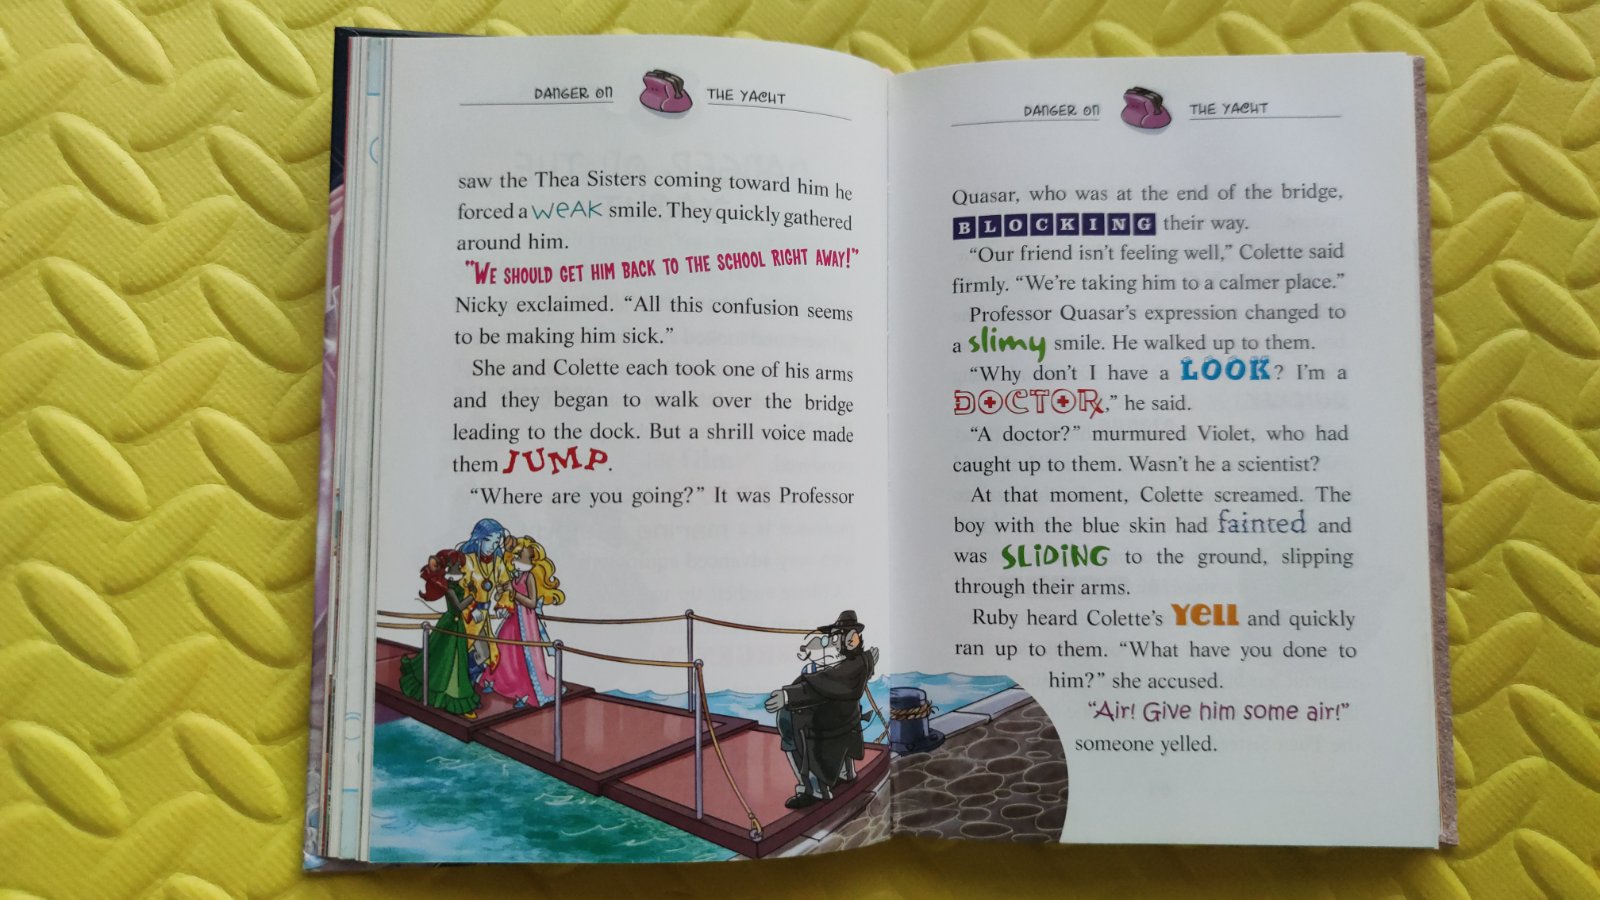 DANGER ON THE YACHT
saw the Thea Sisters coming toward him he
forced a WEAK smile. They quickly gathered
around him.
"WE SHOULD GET HIM BACK TO THE SCHOOL RIGHT AWAY!"
Nicky exclaimed. "All this confusion seems
to be making him sick."
She and Colette each took one of his arms
and they began to walk over the bridge
leading to the dock. But a shrill voice made
them JUMP.
"Where are you going?" It was Professor
DANGER ON THE YACHT
Quasar, who was at the end of the bridge,
BLOCKING their way.
"Our friend isn't feeling well," Colette said
firmly. "We're taking him to a calmer place."
Professor Quasar's expression changed to
a slimy smile. He walked up to them.
"Why don't I have a LOOK? I'm a
DOCTOR," he said.
"A doctor?" murmured Violet, who had
caught up to them. Wasn't he a scientist?
At that moment, Colette screamed. The
boy with the blue skin had fainted and
was SLIDING to the ground, slipping
through their arms.
Ruby heard Colette's YELL and quickly
ran up to them. "What have you done to
him?" she accused.
"Air! Give him some air!"
someone yelled.